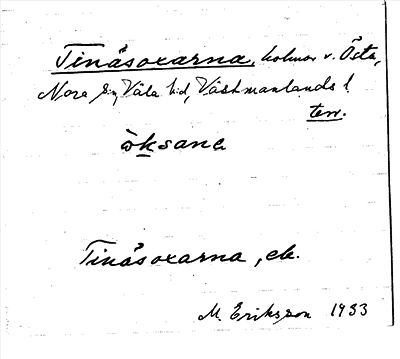 Tinåsoxarna, holmar v. Östa,
Nora sn, Våla hd, Västmanlands l
terr.
ò̀ksana
Tinåsoxarna, ek.
M. Eriksson 1933